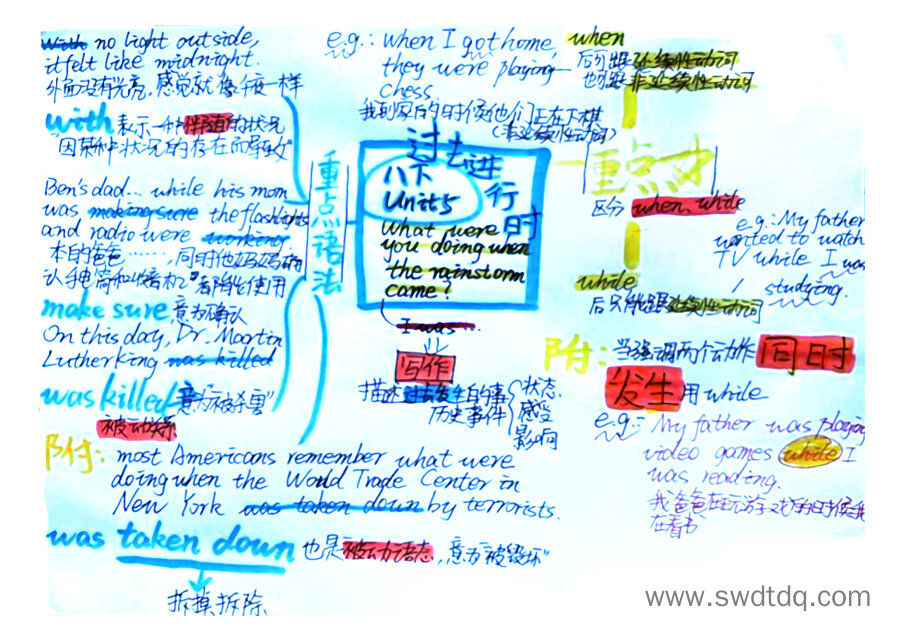 with no light outside,
it felt like midnight.
外面没有光亮，感觉就像午夜一样
with 表示一种伴随的状况
"因某种状况的存在而导致"
Ben's dad... while his mom
was making sure the flashlights
and radio were working
本的爸爸………，同时他妈妈确
认手电筒和收音机 都能使用
make sure 意为确认
On this day, Dr. Martin
Luther King was killed
was killed 意为"被杀害"
被动关系
重点语法
附:
most Americans remember what were
doing when the World Trade Center in
New York was taken down by terrorists.
was taken down 也是被动语态，意为"被毁坏"
拆掉，拆除
过去进行时
八下
Unit5
What were
you doing when
the rainstorm
came?
I was...
写作
描述过去发生的事
历史事件
状态
感受
影响
e.g.: when I got home,
they were playing
chess.
我到家的时候他们正在下棋
(非延续性动词)
when
后可跟延续性动词
也可跟非延续性动词
重点
区分 when、while
while
后只能跟延续性动词
e.g.: My father
wanted to watch
TV while I was
studying.
附: 当强调两个动作同时
发生用while
e.g.: My father was playing
video games while I
was reading.
我爸爸在玩游戏的时候我
在看书
www.swdtdq.com